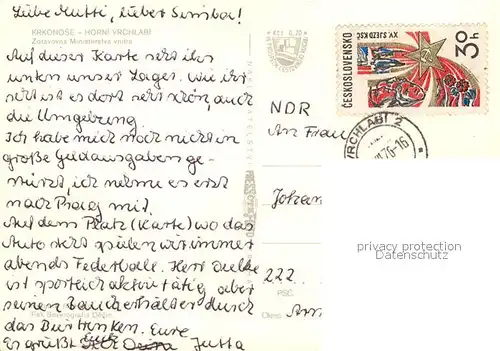 Liebe Mutti, lieber Simba!
KRKONOŠE – HORNÍ VRCHLABÍ
Zotavovna Ministerstva vnitra
Auf dieser Karte seht ihr
unten unser Lager. Wie ihr
seht ist es dort sehr schön, auch
die Umgebung.
Ich habe mich noch nicht in
große Geldausgaben ge-
stürzt, ich nehme es erst
nach Prag mit.
Auf dem Platz (Karte) wo das
Auto steht spielen wir immer
abends Federball. Herr
ist sportlich aktiv tätig aber
seinen Bauch erhält er durch
das Biertrinken. Eure
Es grüßt Euch Jutta
Kčs 0,30
ČESKOSLOVENSKO
XV. SJEZD KSČ
30 h
VRCHLABÍ 2
76-16
NDR
An Frau
Johan
222
PSČ
Okres
privacy protection
Datenschutz